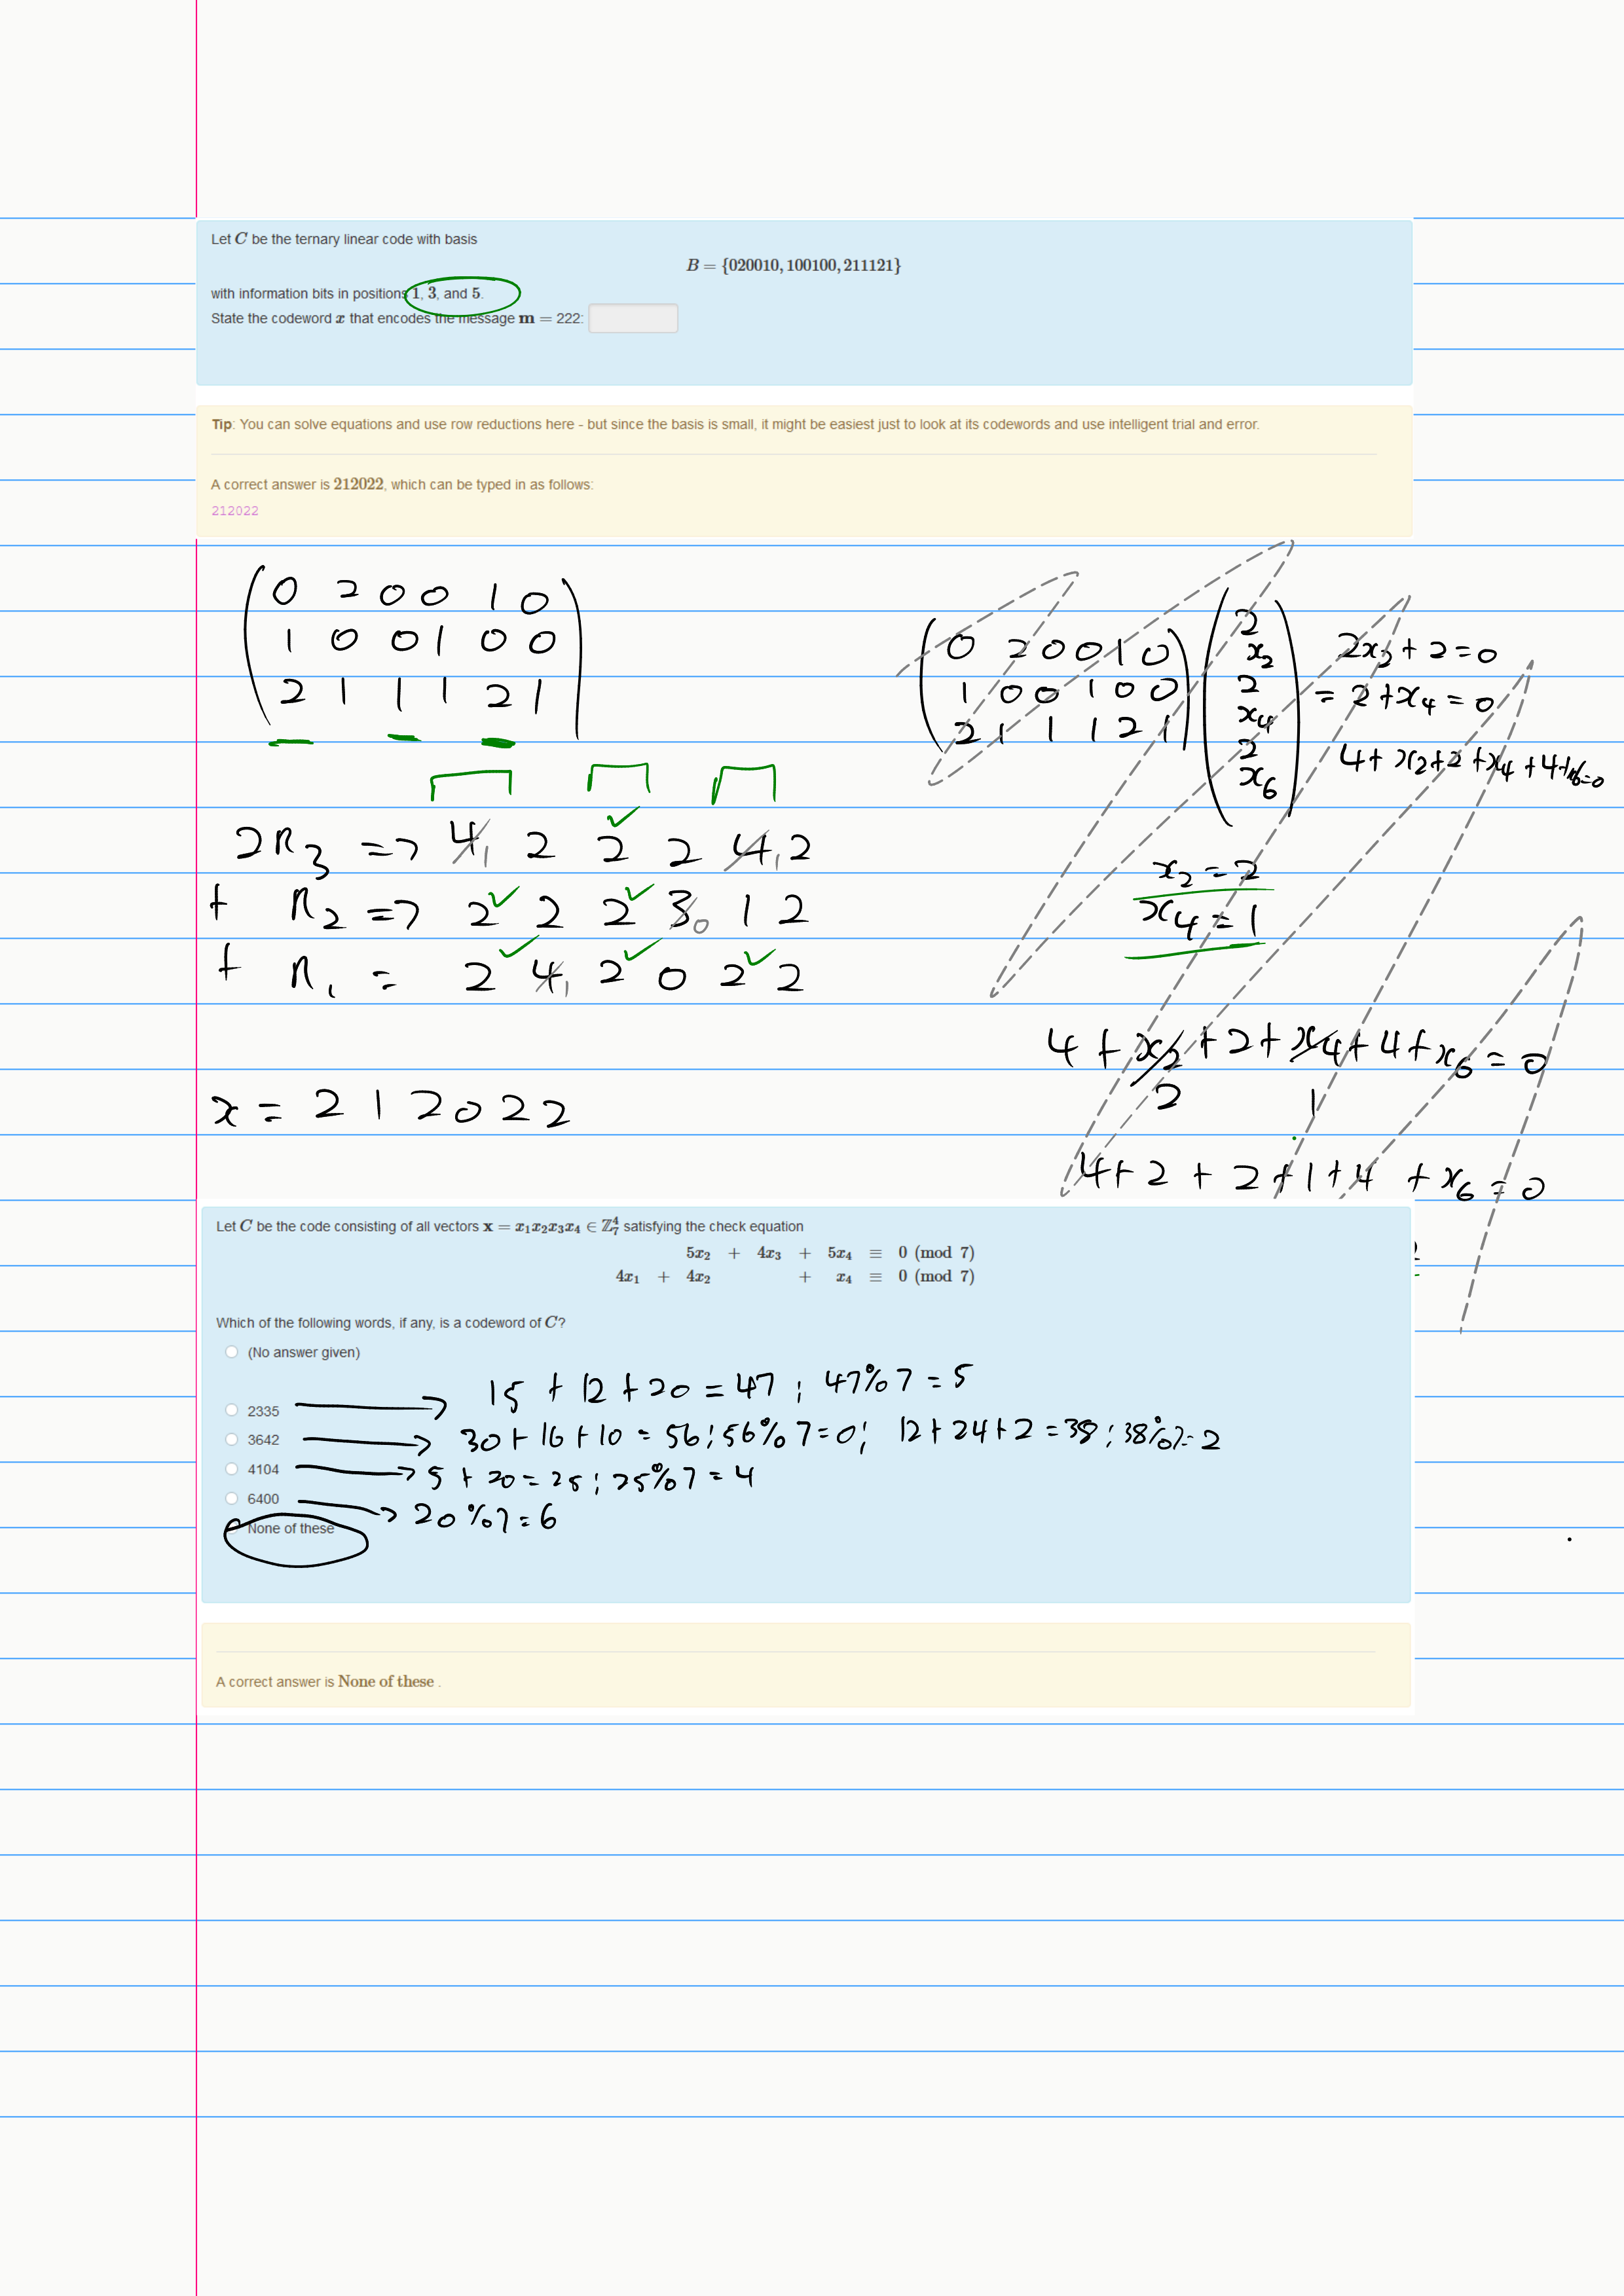 Let C be the ternary linear code with basis
B = {020010, 100100, 211121}
with information bits in positions 1, 3, and 5.
State the codeword x that encodes the message m = 222:
Tip: You can solve equations and use row reductions here - but since the basis is small, it might be easiest just to look at its codewords and use intelligent trial and error.
A correct answer is 212022, which can be typed in as follows:
212022
0 2 0 0 1 0
1 0 0 1 0 0
2 1 1 1 2 1
2R₃ => 4̸, 2 2 2 4̸, 2
1 1
+ R₂ => 2 2 2 3̸ 0 1 2
+ R₁ = 2 4̸ 1 2 0 2 2
x = 2 1 2 0 2 2
0 2 0 0 1 0
1 0 0 1 0 0
2 1 1 1 2 1
2
x₂
2
x₄
2
x₆
2x₂ + 2 = 0
= 2 + x₄ = 0
4 + x₂ + 2 + x₄ + 4 + x₆ = 0
x₂ = 2
x₄ = 1
4 + x₂ + 2 + x₄ + 4 + x₆ = 0
2 1
4 + 2 + 2 + 1 + 4 + x₆ = 0
Let C be the code consisting of all vectors x = x₁x₂x₃x₄ ∈ ℤ₇⁴ satisfying the check equation
5x₂ + 4x₃ + 5x₄ ≡ 0 (mod 7)
4x₁ + 4x₂ + x₄ ≡ 0 (mod 7)
Which of the following words, if any, is a codeword of C?
(No answer given)
2335 → 15 + 12 + 20 = 47 ; 47%7 = 5
3642 → 30 + 16 + 10 = 56 ; 56%7 = 0 ; 12 + 24 + 2 = 38 ; 38%7 = 2
4104 → 5 + 20 = 25 ; 25%7 = 4
6400 → 20%7 = 6
None of these
A correct answer is None of these .